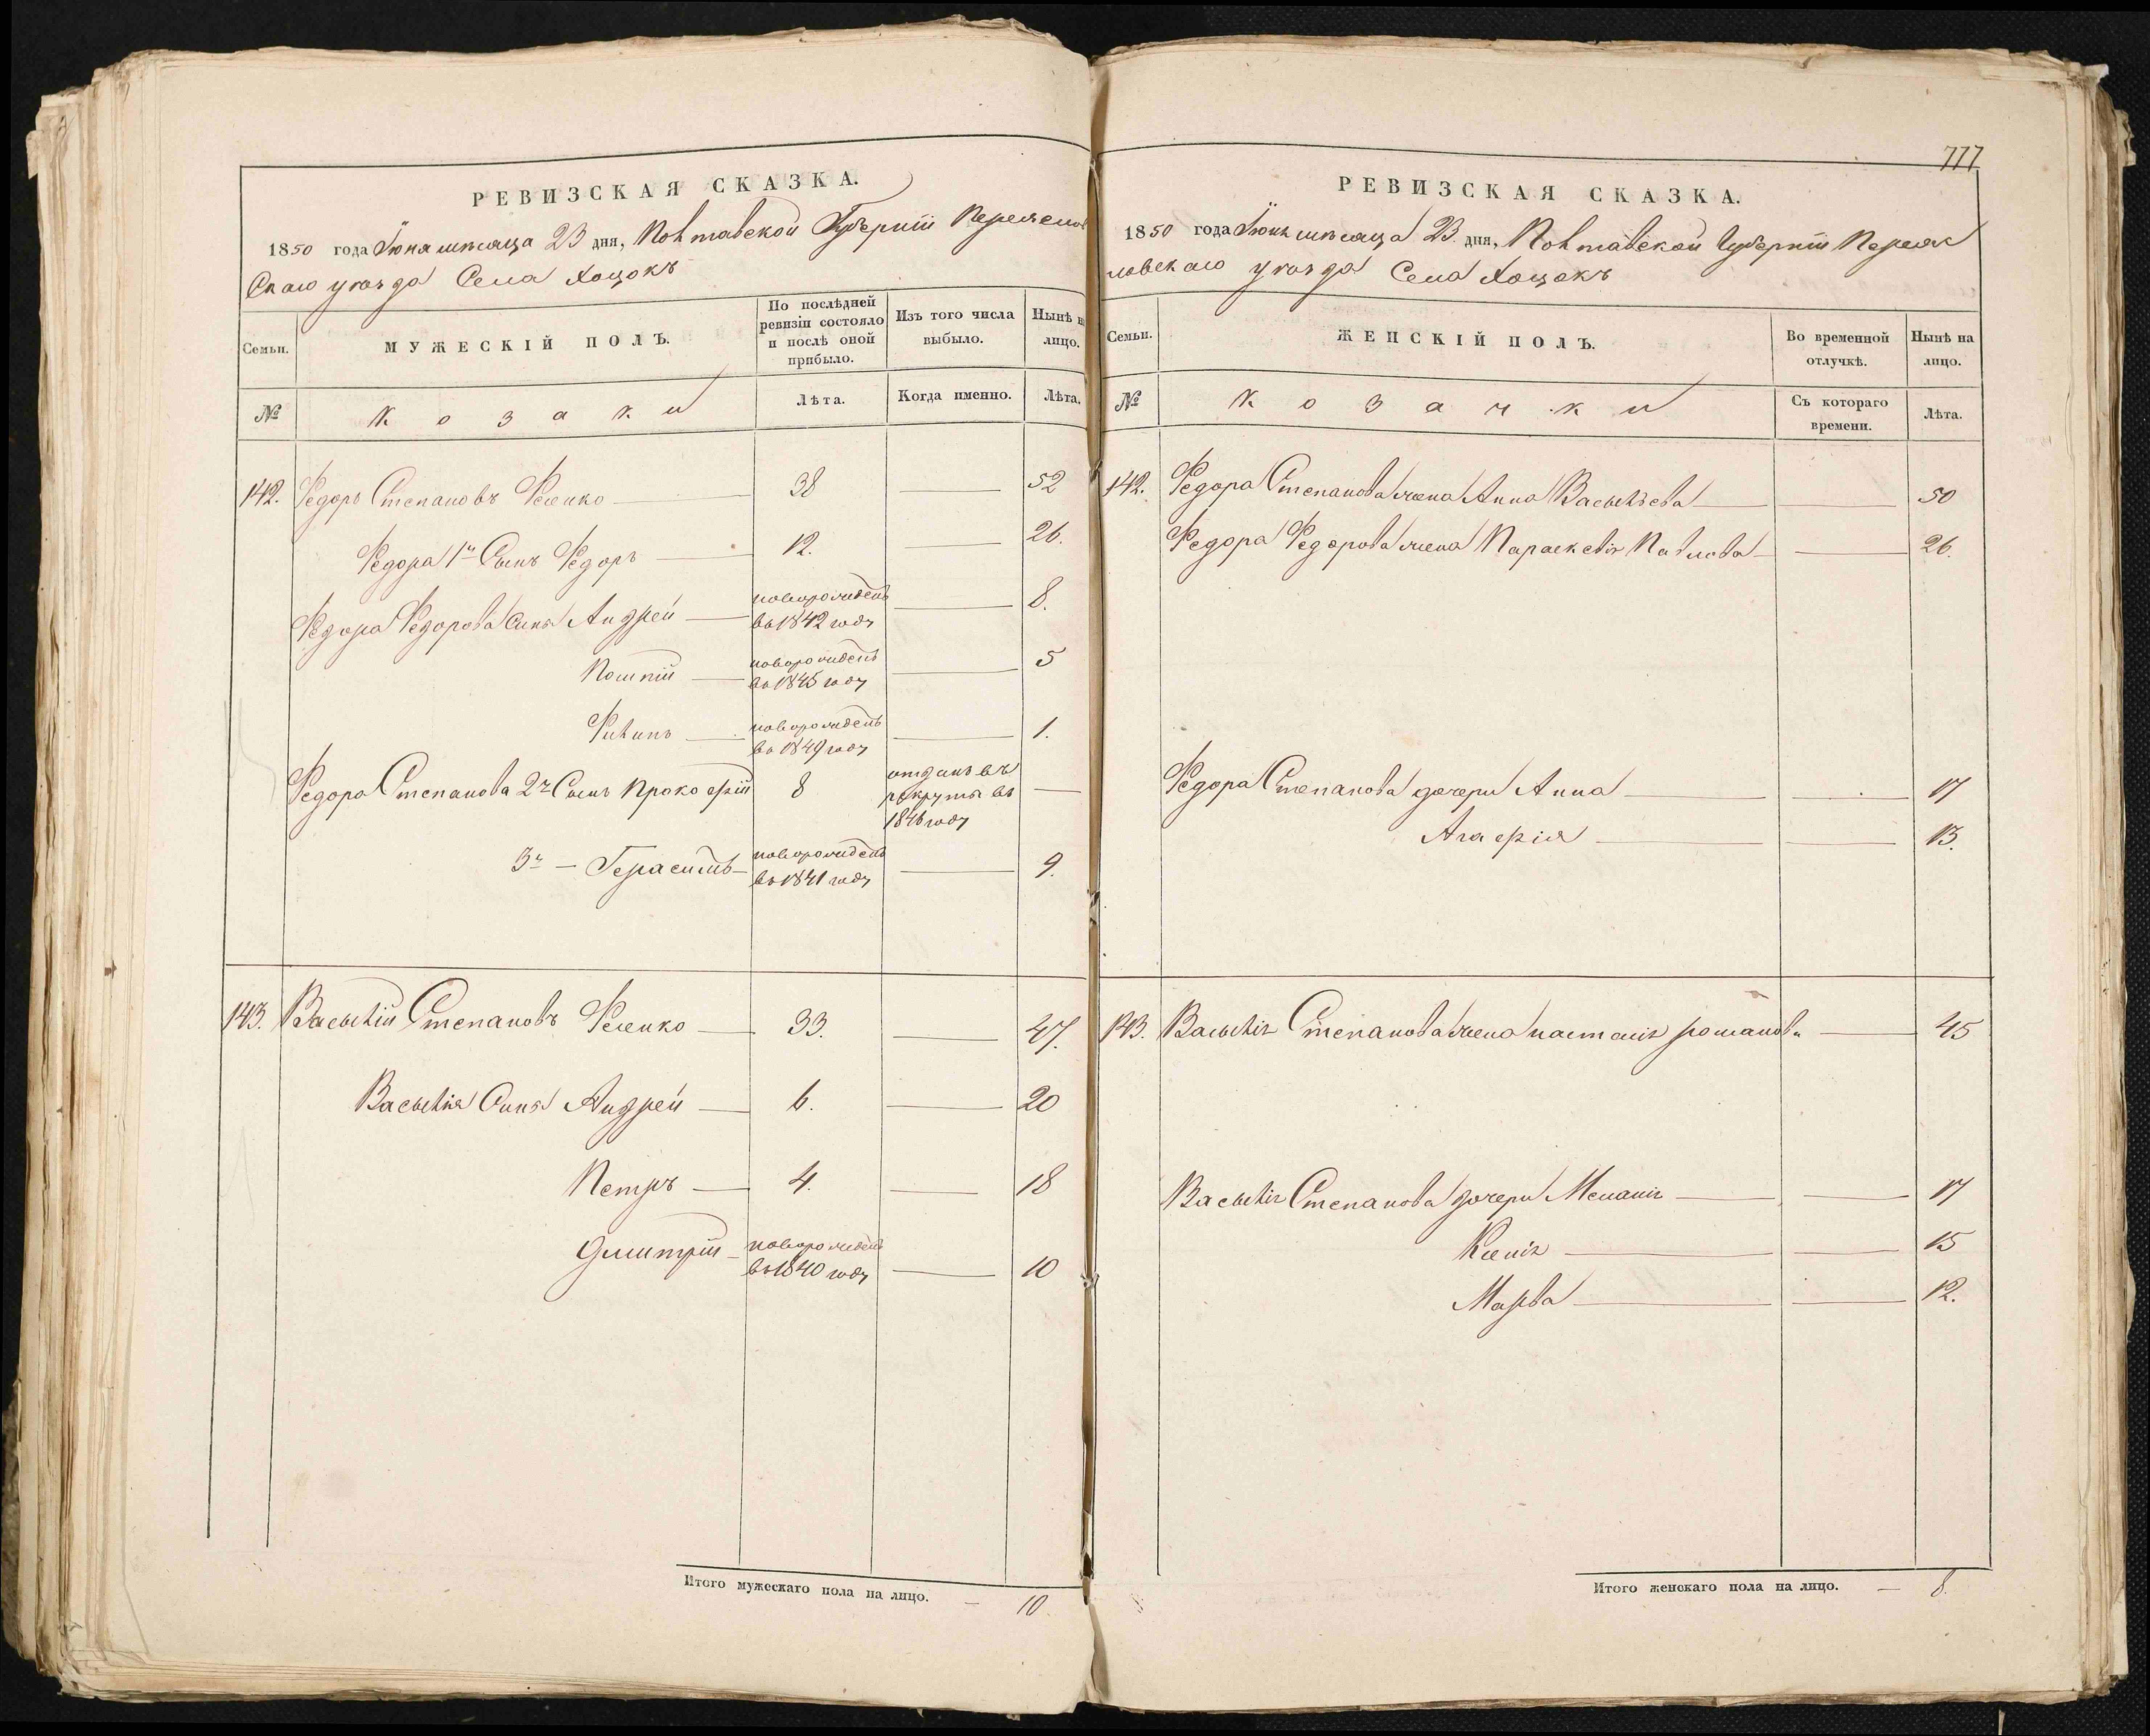 РЕВИЗСКАЯ СКАЗКА.
1850 года Іюня мѣсяца 23 дня, Полтавской Губерніи Переяслов
скаго уѣзда Села Хоцокъ
Семьи.
МУЖЕСКІЙ ПОЛЪ.
По послѣдней ревизіи состояло и послѣ оной прибыло.
Изъ того числа выбыло.
Нынѣ на лицо.
№
Козаки
Лѣта.
Когда именно.
Лѣта.
142. Федоръ Степановъ Феленко — 38 — 52
Федора 1й Сынъ Федоръ — 12. — 26.
Федора Федорова Сынъ Андрей — новорожденъ въ 1842 году — 8.
— новорожденъ въ 1845 году — 5
Филипъ — новорожденъ въ 1849 году — 1.
Федора Степанова 2й Сынъ Прокофій 8 отданъ въ рекруты въ 1846 году —
3й — Герасимъ — новорожденъ въ 1841 году — 9.
143. Василій Степановъ Феленко — 33. — 47.
Василія Сынъ Андрей — 6. — 20
Петръ — 4. — 18
Дмитрій — новорожденъ въ 1840 году — 10
Итого мужескаго пола на лицо. — 10
777
РЕВИЗСКАЯ СКАЗКА.
1850 года Іюня мѣсяца 23 дня, Полтавской Губерніи Переяс
ловскаго уѣзда Села Хоцокъ
Семьи.
ЖЕНСКІЙ ПОЛЪ.
Во временной отлучкѣ.
Нынѣ на лицо.
№
Козачки
Съ котораго времени.
Лѣта.
142. Федора Степанова жена Анна Васильева — — 50
Федора Федорова жена Параскевія Павлова — — 26.
Федора Степанова дочери Анна — — 17
Агафія — — 13.
143. Василія Степанова жена настасія романова — 45
Василія Степанова дочери Меланія — — 17
Ксенія — — 15
Марфа — — 12.
Итого женскаго пола на лицо. — 8.